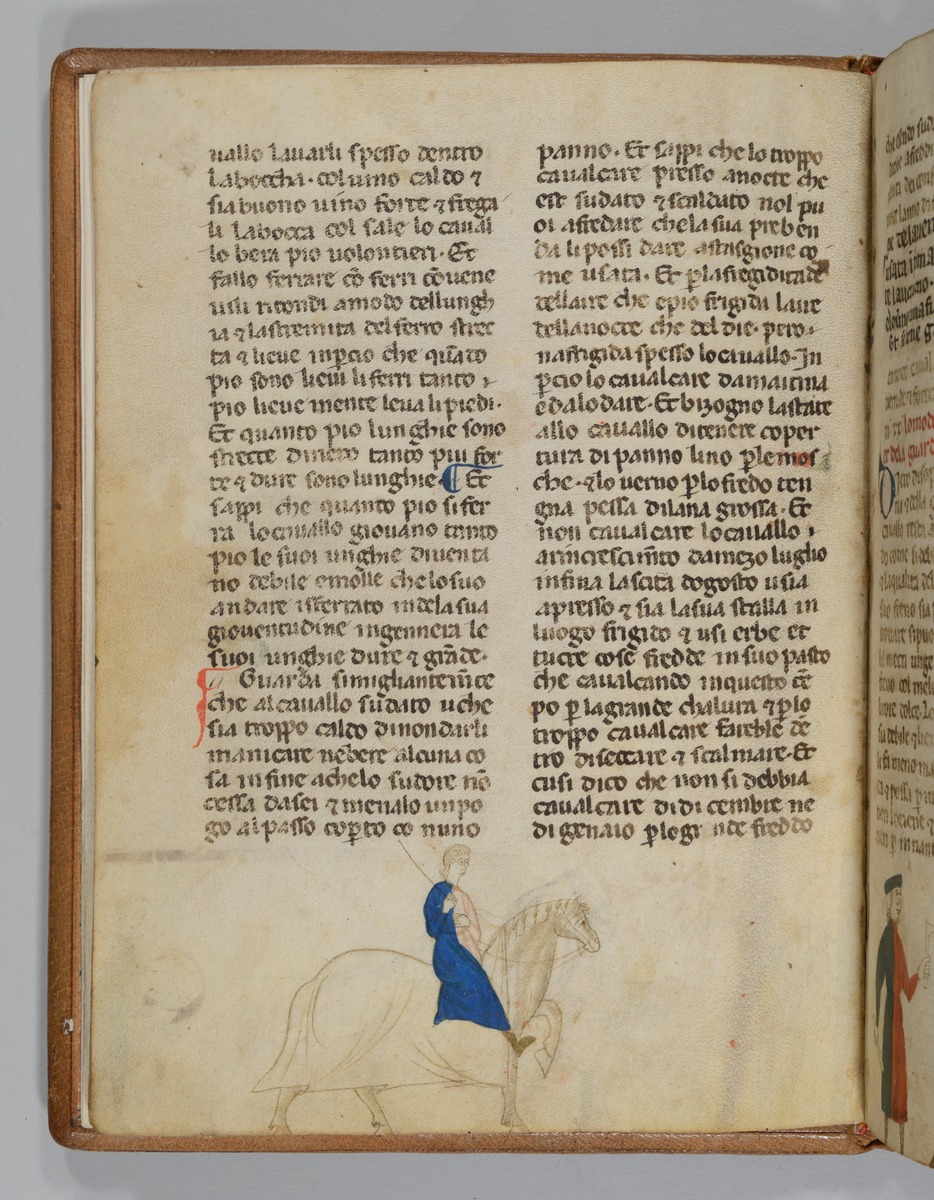 uallo lauarli spesso dentro
la boccha · col uino caldo ⁊
sia buono uino forte ⁊ frega
li la bocca col sale lo caual
lo bera pio uolontieri · Et
fallo ferrare cō ferri cōuene
uili ritondi a modo dellungh
ia ⁊ lastremita del ferro stret
ta ⁊ lieue inꝑcio che quāto
pio sono lieui li ferri tanto
pio lieue mente leua li piedi ·
Et quanto pio lunghie sono
strecte dintro tanto piu for
te ⁊ dure sono lunghie · ¶ Et
sappi che quanto pio si fer
ra lo cauallo giouano tanto
pio le suoi unghie diuenta
no debile e molle che lo suo
andare isferrato in dela sua
gioventudine ingennera le
suoi unghie dure ⁊ grāde ·
Guarda simigliantem̄te
che al cauallo sudato u che
sia troppo caldo di non darli
manicare ne bere alcuna co
sa in fine a che lo sudore nō
cessa da sei ⁊ menalo un po
go al passo coꝑto co nuno
panno · Et sappi che lo troppo
caualcare presso a nocte che
est sudato ⁊ scaldato nol pu
oi afredare che la sua preben
da li possi dare a stasgione co
me usata · Et ꝑ la fregiditade
dellaire che e pio frigida laire
della nocte che del die · pero
nafrigida spesso lo cauallo · In
ꝑcio lo caualcare da maitina
e da lodare · Et bizogno la state
allo cauallo di tenere coper
tura di panno lino ꝑ le mos
che · ⁊ lo uerno ꝑ lo fredo ten
gna pessa di lana grossa · Et
non caualcare lo cauallo
a rincrescim̄to da mezo luglio
infina lascita dogosto u sia
apresso ⁊ sia la sua stalla in
luogo frigido ⁊ usi erbe et
tucte cose fredde in suo pasto
che caualcando in questo tē
po ꝑ la grande chalura ⁊ ꝑ lo
troppo caualcare fareble dē
tro diseccare ⁊ scalmare · Et
cusi dico che non si debbia
caualcare di dicembre ne
di genaio ꝑ lo grande freddo